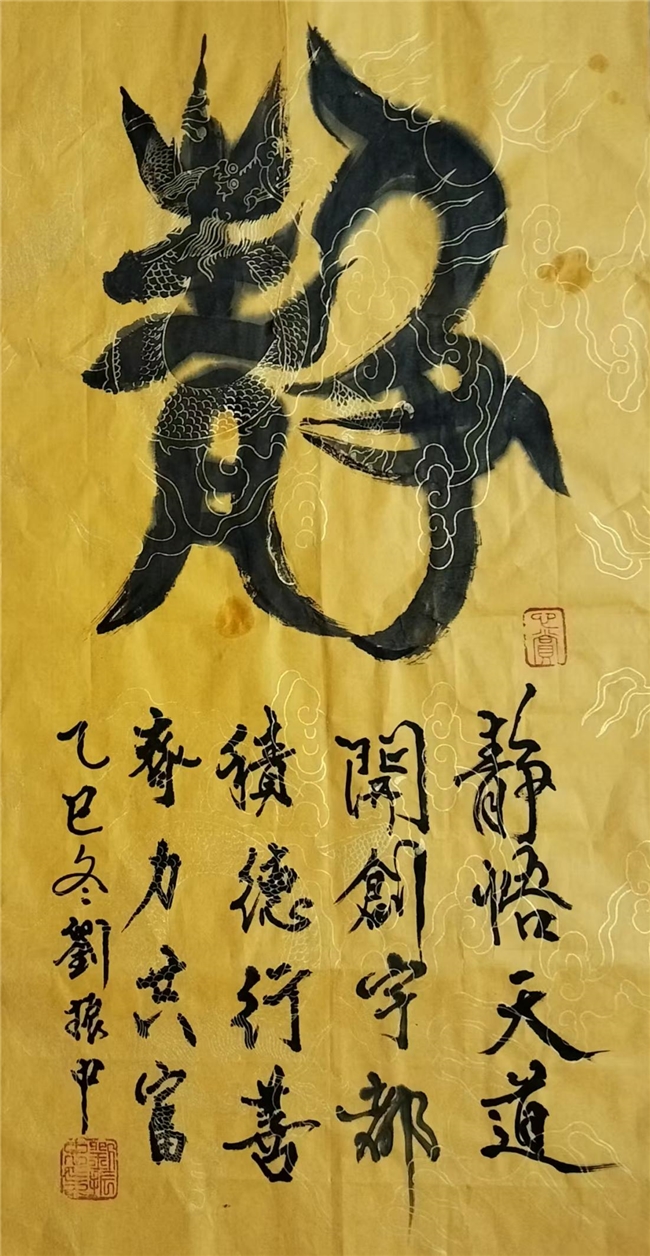 靜
心賞
靜悟天道
開創宇都
積德行善
齊力共富
乙巳冬劉振中